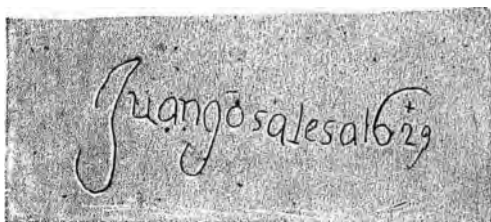 Juan gōsalesal 1629